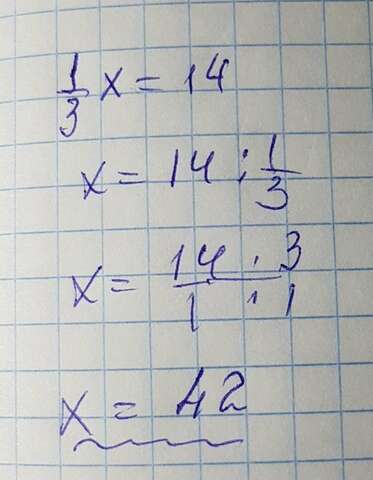 1/3 x = 14
x = 14 : 1/3
x = 14 · 3 / 1 · 1
x = 42